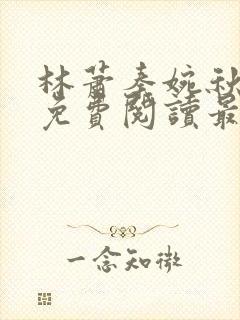 林蕭秦婉秋
免費閱讀最
一念知微